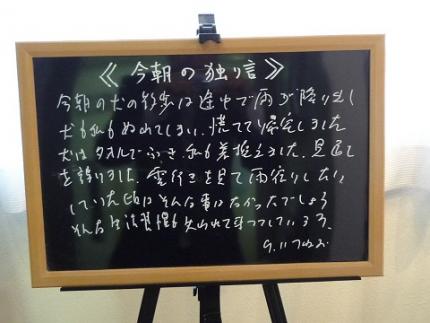 《今朝の独り言》
今朝の犬の散歩は途中で雨が降り出し
犬も私もぬれてしまい、慌てて帰宅しました
犬はタオルでふき、私も着換えました。見通し
を誤りました。雲行きを見て雨宿りしたり
していた頃はそんな事はなかったでしょう
そんな生活習慣も失われて来つつしている
9.11